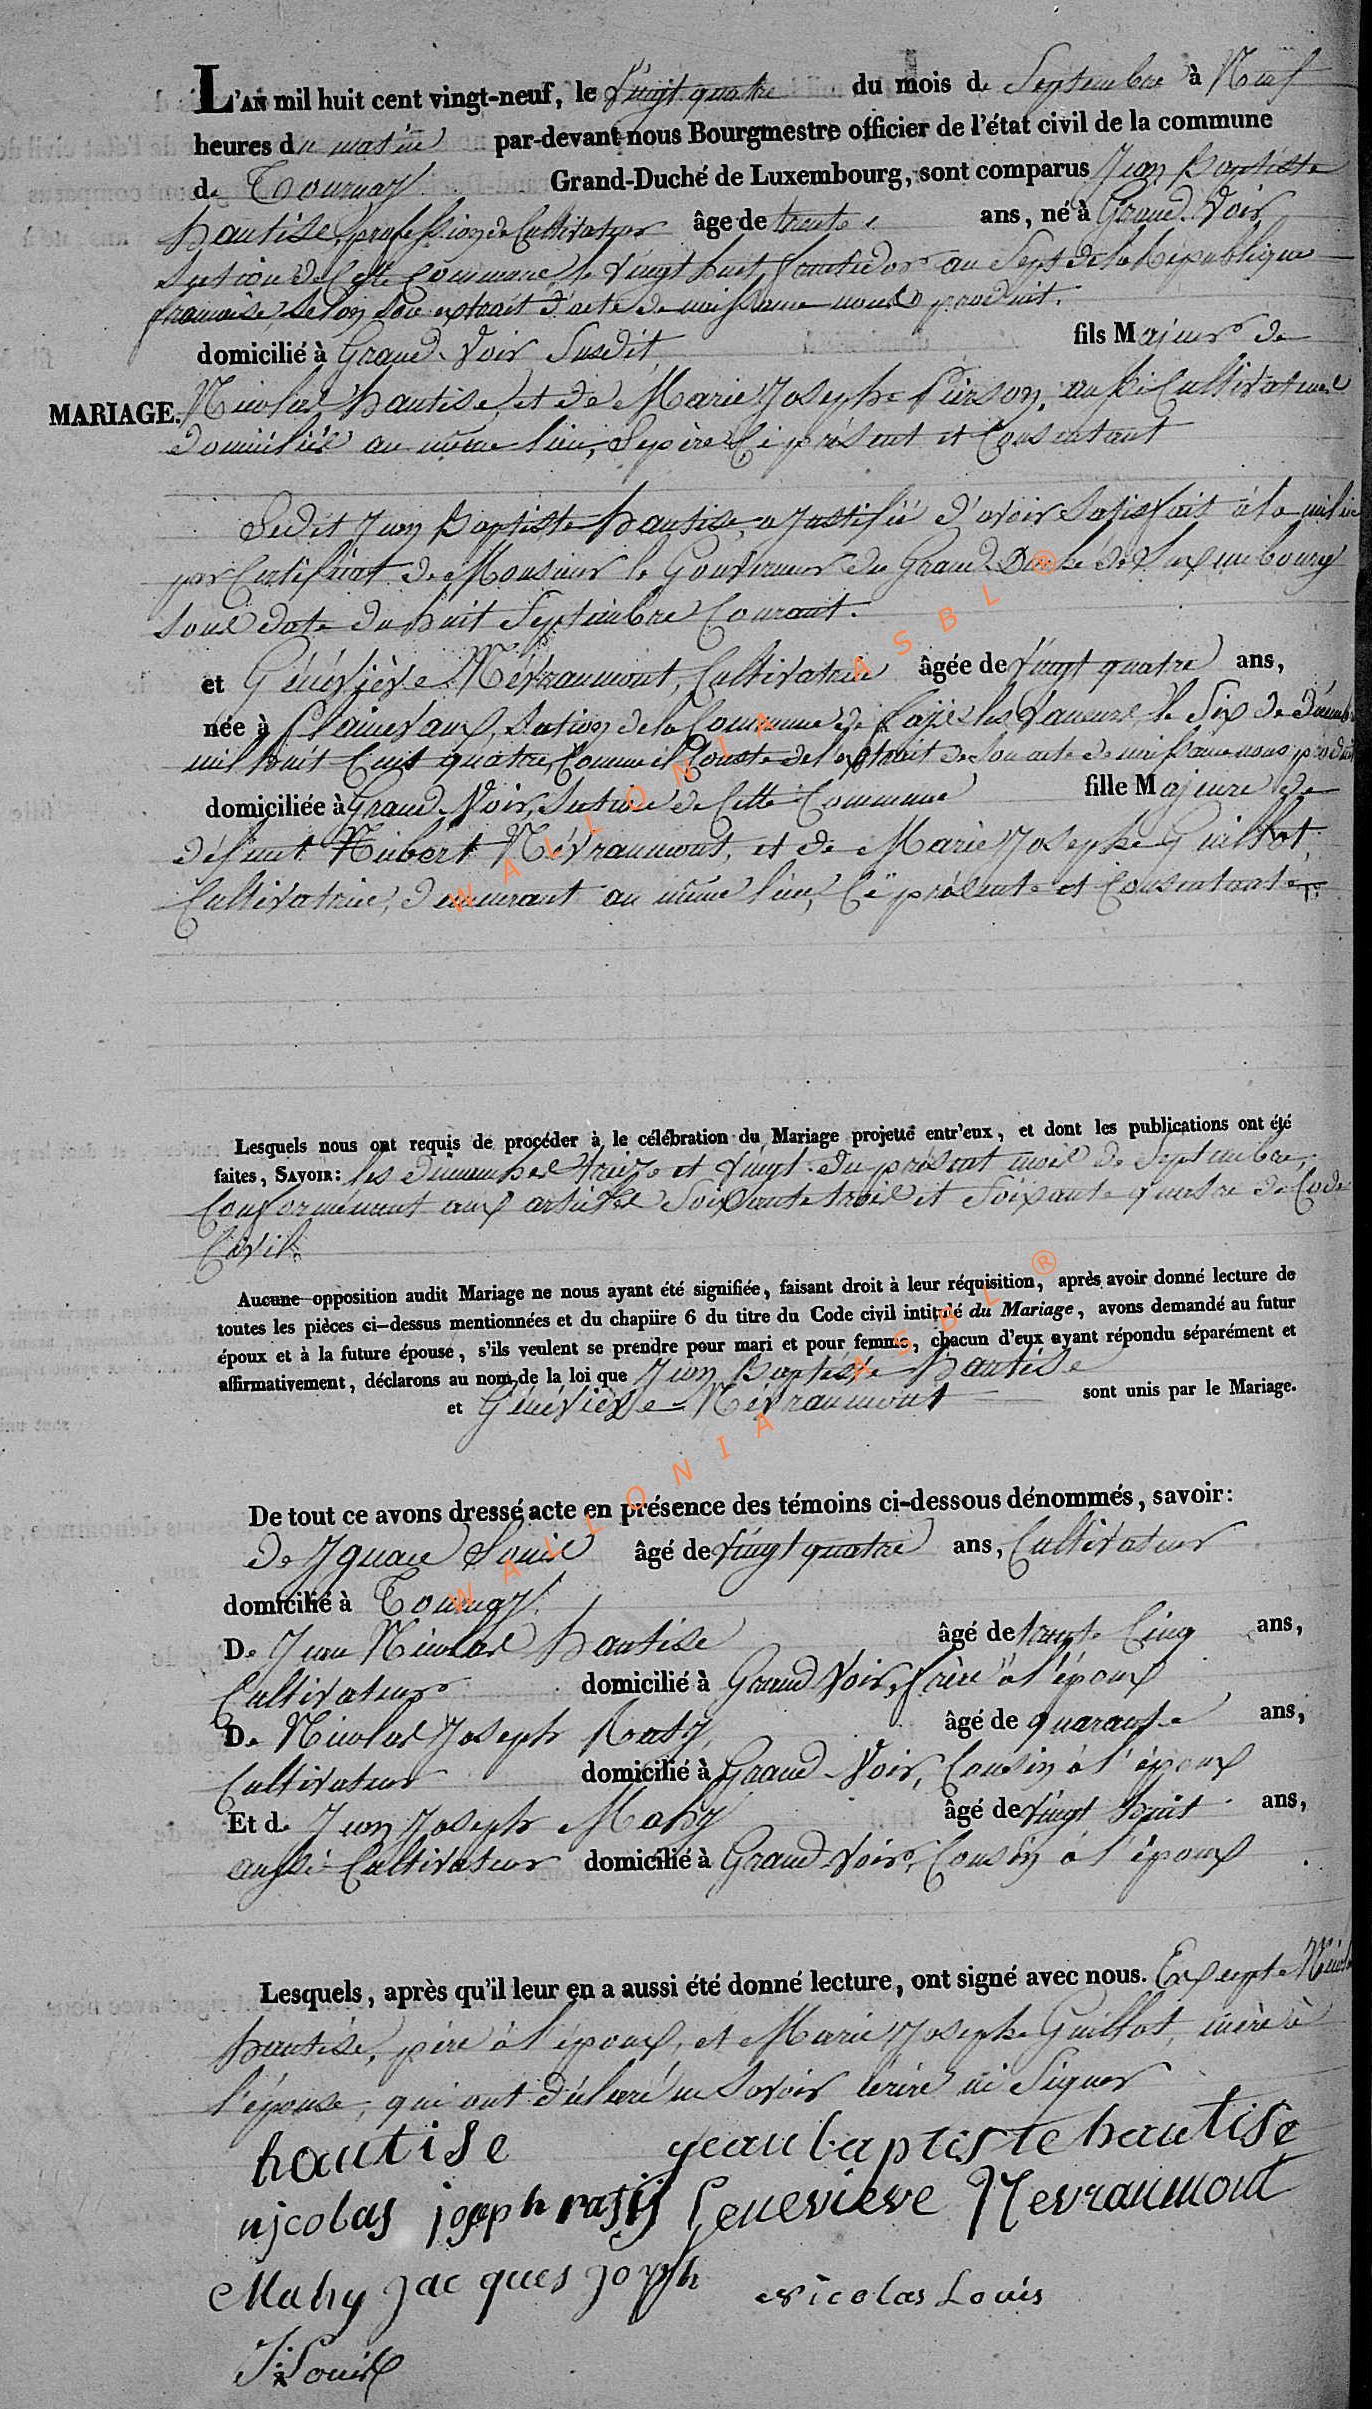 L'AN mil huit cent vingt-neuf, le Vingt quatre du mois de Septembre à Neuf
heures du matin par-devant nous Bourgmestre officier de l'état civil de la commune
de Tournay Grand-Duché de Luxembourg, sont comparus Jean Baptiste
hautise, profession de Cultivateur âge de trente ans, né à Grand-Voir,
Section de Cette Commune, le Vingt huit fructidor an Sept de la République
francaise, Selon Son extrait d'acte de naissance nous produit.
domicilié à Grand-Voir Susdit, fils Majeur de
MARIAGE. Nicolas hautise, et de Marie Joseph Pierson, aussi Cultivateurs
domiciliés au même lieu, Le père Ci présent et Consentant
Ledit Jean Baptiste hautise, a Justifié d'avoir Satisfait à la milice
par Certificat de Monsieur le Gouverneur du Grand Duché de Luxembourg
Sous date du huit Septembre Courant.
et Génévièvre Névraumont, Cultivatrice âgée de Vingt quatre ans,
née à flainevaux, Section de la Commune de fays les Veneurs, le Six de décembre
mil huit Cent quatre, Comme il Conste de l'extrait de Son acte de naissance nous produit
domiciliée à Grand-Voir, Section de Cette Commune fille Majeure de
défunt Hubert Névraumont, et de Marie Josephe Guillot,
Cultivatrice, demeurant au même lieu, Ci présente et Consentante
Lesquels nous ont requis de procéder à le célébration du Mariage projetté entr'eux, et dont les publications ont été
faites, SAVOIR: les dimanches treize et vingt du présent mois de Septembre,
Conformément aux articles Soixante trois et Soixante quatre du Code
Civil.
Aucune opposition audit Mariage ne nous ayant été signifiée, faisant droit à leur réquisition, après avoir donné lecture de
toutes les pièces ci-dessus mentionnées et du chapiire 6 du titre du Code civil intitulé du Mariage, avons demandé au futur
époux et à la future épouse, s'ils veulent se prendre pour mari et pour femme, chacun d'eux ayant répondu séparément et
affirmativement, déclarons au nom de la loi que Jean Baptiste hautise
et Génévièvre Névraumont sont unis par le Mariage.
De tout ce avons dressé acte en présence des témoins ci-dessous dénommés, savoir:
De Ignace Louis âgé de Vingt quatre ans, Cultivateur
domicilié à Tournay.
De Jean Nicolas hautise âgé de trente Cinq ans,
Cultivateur domicilié à Grand Voir, frère à l'époux
De Nicolas Joseph Rasy, âgé de quarante ans,
Cultivateur domicilié à Grand-Voir, Cousin à l'époux
Et de Jean Joseph Mahy âgé de Vingt huit ans,
aussi Cultivateur domicilié à Grand-Voir, Cousin à l'époux
Lesquels, après qu'il leur en a aussi été donné lecture, ont signé avec nous. Excepté Nicolas
hautise, père à l'époux, et Marie Josephe Guillot, mère à
l'épouse, qui ont déclaré ne Savoir écrire ni Signer
hautise jean baptiste hautise
nicolas joseph rasij Genevieve Nevraumont
Mahy jacques joseph Nicolas Louis
I: Louis
WALLONIA ASBL ®
WALLONIA ASBL ®